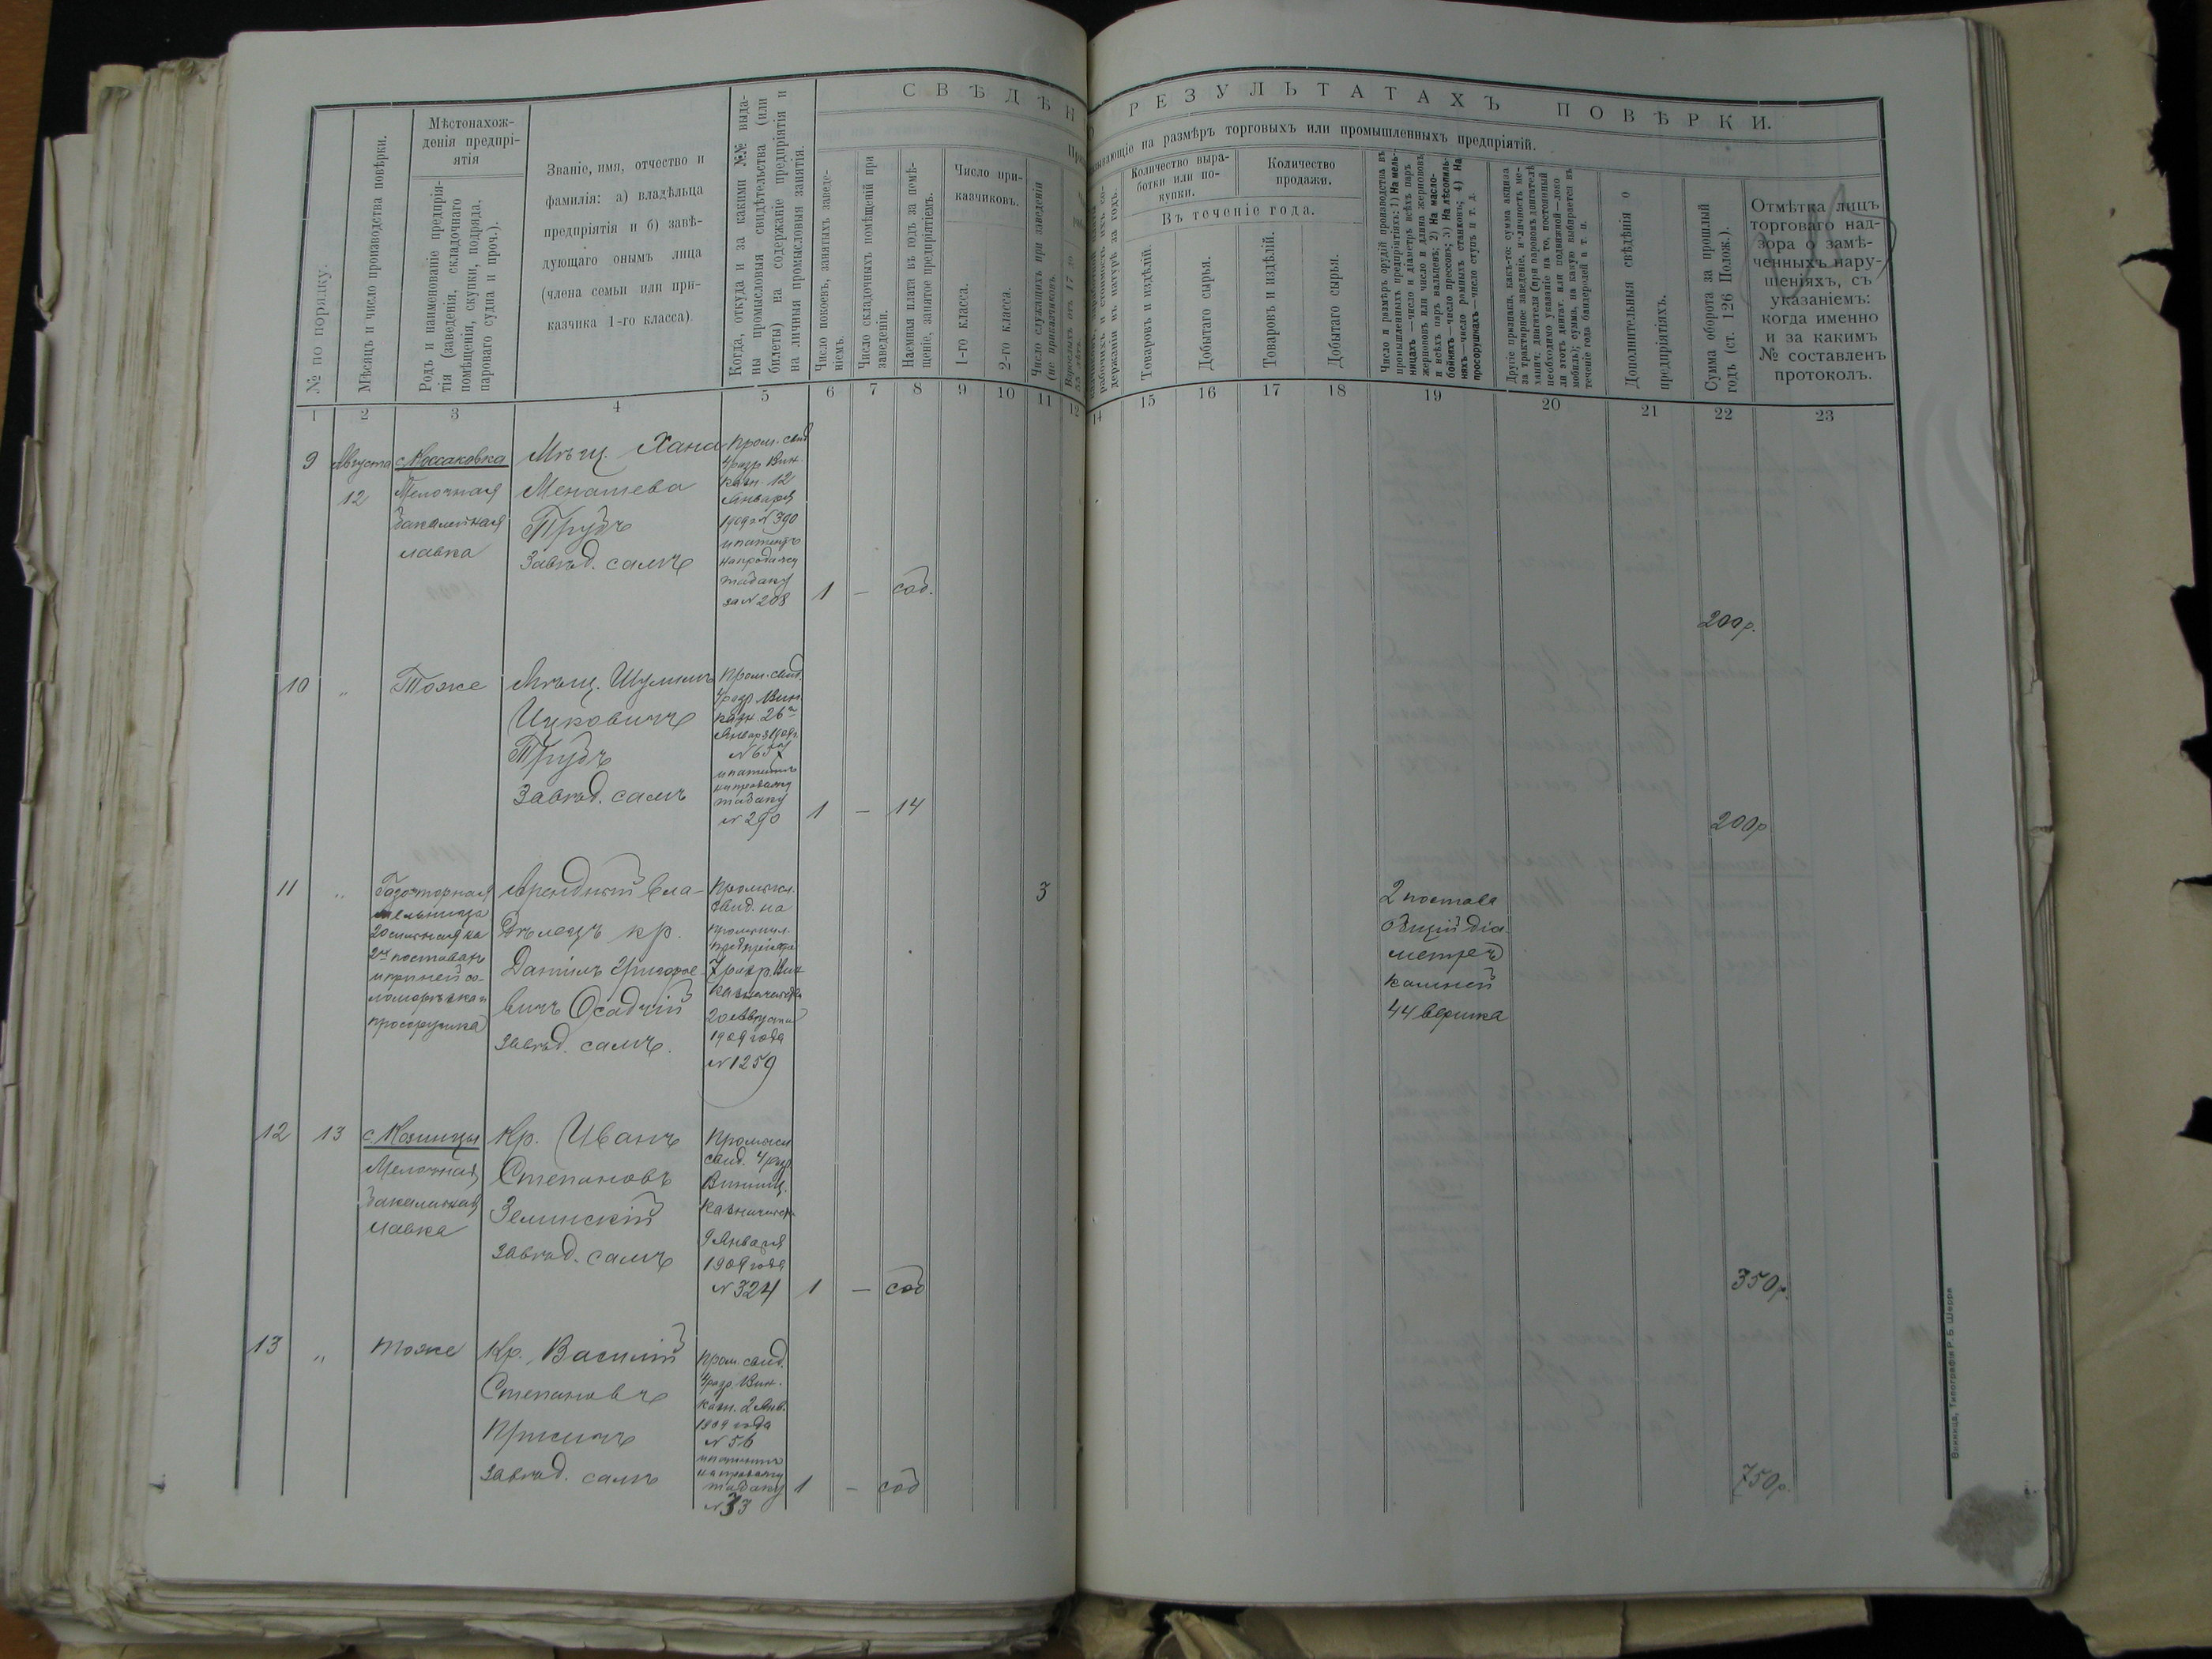 СВѢДѢН
О РЕЗУЛЬТАТАХЪ ПОВѢРКИ.
зывающіе на размѣръ торговыхъ или промышленныхъ предпріятій.
№ по порядку.
Мѣсяцъ и число производства повѣрки.
Мѣстонахож-
денія предпрі-
ятія
Родъ и наименованіе предпрія-
тія (заведенія, складочнаго
помѣщенія, скупки, подряда,
пароваго судна и проч.).
Званіе, имя, отчество и
фамилія: а) владѣльца
предпріятія и б) завѣ-
дующаго онымъ лица
(члена семьи или при-
казчика 1-го класса).
Когда, откуда и за какими №№ выда-
ны промысловыя свидѣтельства (или
билеты) на содержаніе предпріятія и
на личныя промысловыя занятія.
Число покоевъ, занятыхъ заведе-
ніемъ.
Число складочныхъ помѣщеній при
заведеніи.
Наемная плата въ годъ за помѣ-
щеніе, занятое предпріятіемъ.
Число при-
казчиковъ.
1-го класса.
2-го класса.
Число служащихъ при заведеніи
(не приказчиковъ.
Количество выра-
ботки или по-
купки.
Количество
продажи.
Въ теченіе года.
Товаровъ и издѣлій.
Добытаго сырья.
Товаровъ и издѣлій.
Добытаго сырья.
Число и размѣръ орудій производства въ
промышленныхъ предпріятіяхъ: 1) На мель-
ницахъ—число и діаметръ всѣхъ паръ
жернововъ или число и длина жернововъ
и всѣхъ паръ вальцевъ; 2) На масло-
бойняхъ—число прессовъ; 3) На лѣсопиль-
няхъ—число рамныхъ станковъ; 4) На
просорушкахъ—число ступъ и т. д.
Дополнительныя свѣдѣнія о
предпріятіяхъ.
Сумма оборота за прошлый
годъ (ст. 126 Полож.).
Отмѣтка лицъ
торговаго над-
зора о замѣ-
ченныхъ нару-
шеніяхъ, съ
указаніемъ:
когда именно
и за какимъ
№ составленъ
протоколъ.
1 2 3 4 5 6 7 8 9 10 11 12
14 15 16 17 18 19 20 21 22 23
9
Августа
12
с. Коссаковка
Мелочная
бакалейная
лавка
Мѣщ. Хана
Менашева
Трудъ
Завѣд. самъ
Пром. свид
4 разр Вин.
казн. 12
Января
1909 г N 390
и патентъ
на продажу
табаку
за N 208
1 — соб.
200р.
10
"
Тоже
Мѣщ. Шулимъ
Ицковичъ
Трудъ
Завѣд. самъ
Пром. свид.
4 разр Вин
казн. 26
Января 1909 г.
и патентъ
на продажу
табаку
N 290
1 — 14
200р
11
"
мельница
20 сильная на
просорушка
Арендный вла-
дѣлецъ кр.
Даніилъ Григорье-
вичъ Осадчій
завѣд. самъ.
Промысл.
свид. на
промышл.
предпріятіе
7 разр. Вин
казначейства
20 Августа
1909 года
N 1259
3
2 постава
общій діа-
метръ
камней
44 вершка
12
13
с. Козинцы
Мелочная
бакалейная
лавка
Кр. Иванъ
Степановъ
Зелинскій
завѣд. самъ
Промысл
свид. 4 разр
Винниц.
казначейст
9 Января
1909 года
N 324
1 — соб
350р.
13
"
тоже
Кр. Василій
Степановъ
завѣд. самъ
Пром. свид.
4 разр. Вин.
казн. 2 Янв.
1909 года
N 56
и патентъ
на продажу
табаку
N 33
1 — соб
750р.
Винница, Типографія Р. Б. Шерра